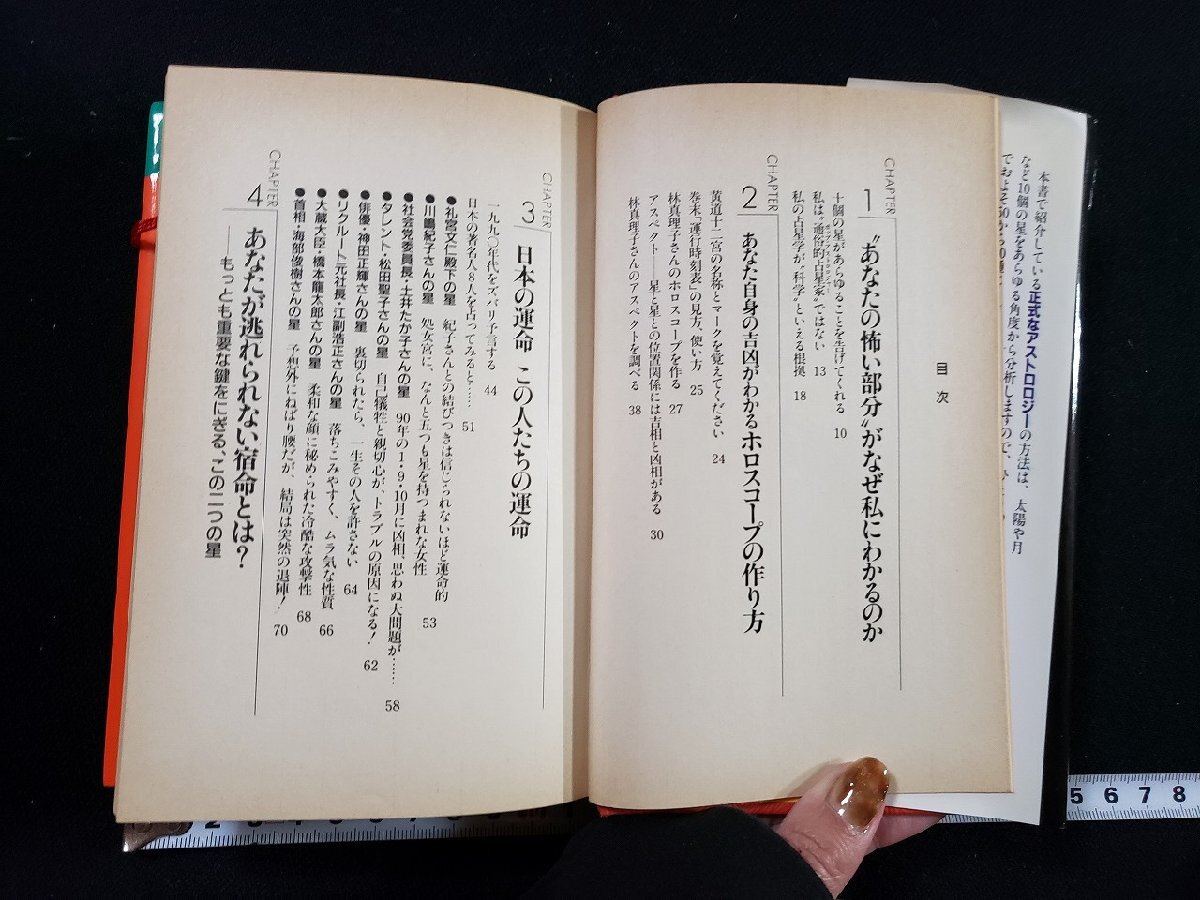 本書で紹介している正式なアストロロジーの方法は、太陽や月
など10個の星をあらゆる角度から分析しますので、
目次
CHAPTER
1
“あなたの怖い部分”がなぜ私にわかるのか
十個の星があらゆることを告げてくれる 10
私は“通俗的占星家”ではない 13
私の占星学が“科学”といえる根拠 18
CHAPTER
2
あなた自身の吉凶がわかるホロスコープの作り方
黄道十二宮の名称とマークを覚えてください 24
巻末「運行時刻表」の見方、使い方 25
林真理子さんのホロスコープを作る 27
アスペクト——星と星との位置関係には吉相と凶相がある 30
林真理子さんのアスペクトを調べる 38
CHAPTER
3
日本の運命 この人たちの運命
一九九〇年代をズバリ予言する 44
日本の著名人8人を占ってみると…… 51
●礼宮文仁殿下の星 紀子さんとの結びつきは信じられないほど運命的
●川嶋紀子さんの星 処女宮に、なんと五つも星を持つまれな女性 53
●社会党委員長・土井たか子さんの星 90年の1・9・10月に凶相、思わぬ大問題が…… 58
●タレント・松田聖子さんの星 自己犠牲と親切心が、トラブルの原因になる! 62
●俳優・神田正輝さんの星 裏切られたら、一生その人を許さない 64
●リクルート元社長・江副浩正さんの星 落ちこみやすく、ムラ気な性質 66
●大蔵大臣・橋本龍太郎さんの星 柔和な顔に秘められた冷酷な攻撃性 68
●首相・海部俊樹さんの星 予想外にねばり腰だが、結局は突然の退陣! 70
CHAPTER
4
あなたが逃れられない宿命とは?
——もっとも重要な鍵をにぎる、この二つの星
2 3 4
5 6 7 8